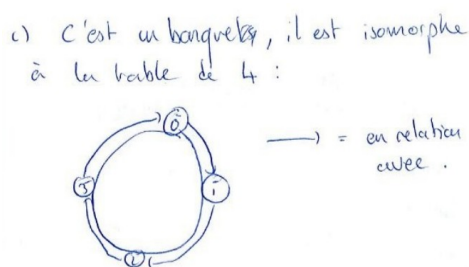 c) C'est un banquet, il est isomorphe
à la table de 4 :
0
→ = en relation
avec.
3
1
2